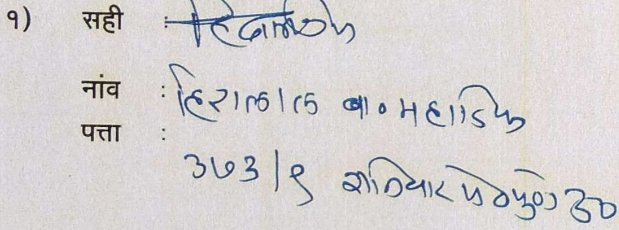 १) सही :
नांव : हिरालाल बा. महाडिक
पत्ता :
३७३/१ शनिवार पेठ पुणे ३०